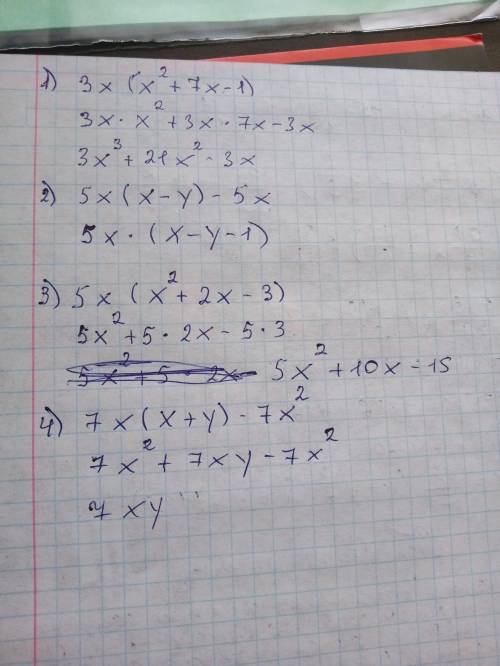 1) 3x (x²+7x-1)
3x · x² + 3x · 7x - 3x
3x³ + 21x² - 3x
2) 5x (x-y) - 5x
5x · (x-y-1)
3) 5x (x² + 2x - 3)
5x² + 5 · 2x - 5 · 3
5x² + 5 · 2x - 5x² + 10x - 15
4) 7x (x+y) - 7x²
7x² + 7xy - 7x²
7xy